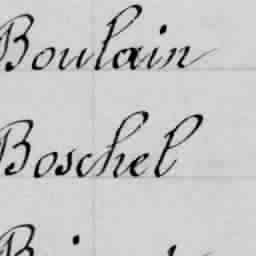 Boulain
Boschel